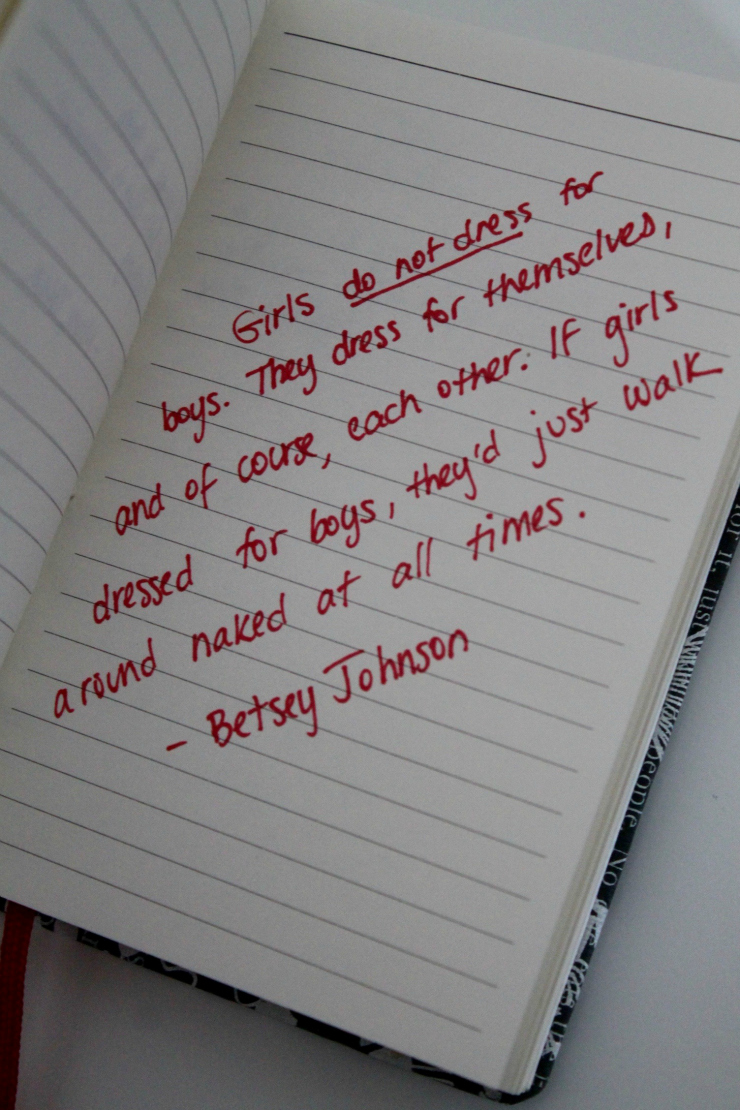 Girls do not dress for
boys. They dress for themselves,
and of course, each other. If girls
dressed for boys, they'd just walk
around naked at all times.
- Betsey Johnson
for it, just
people. No